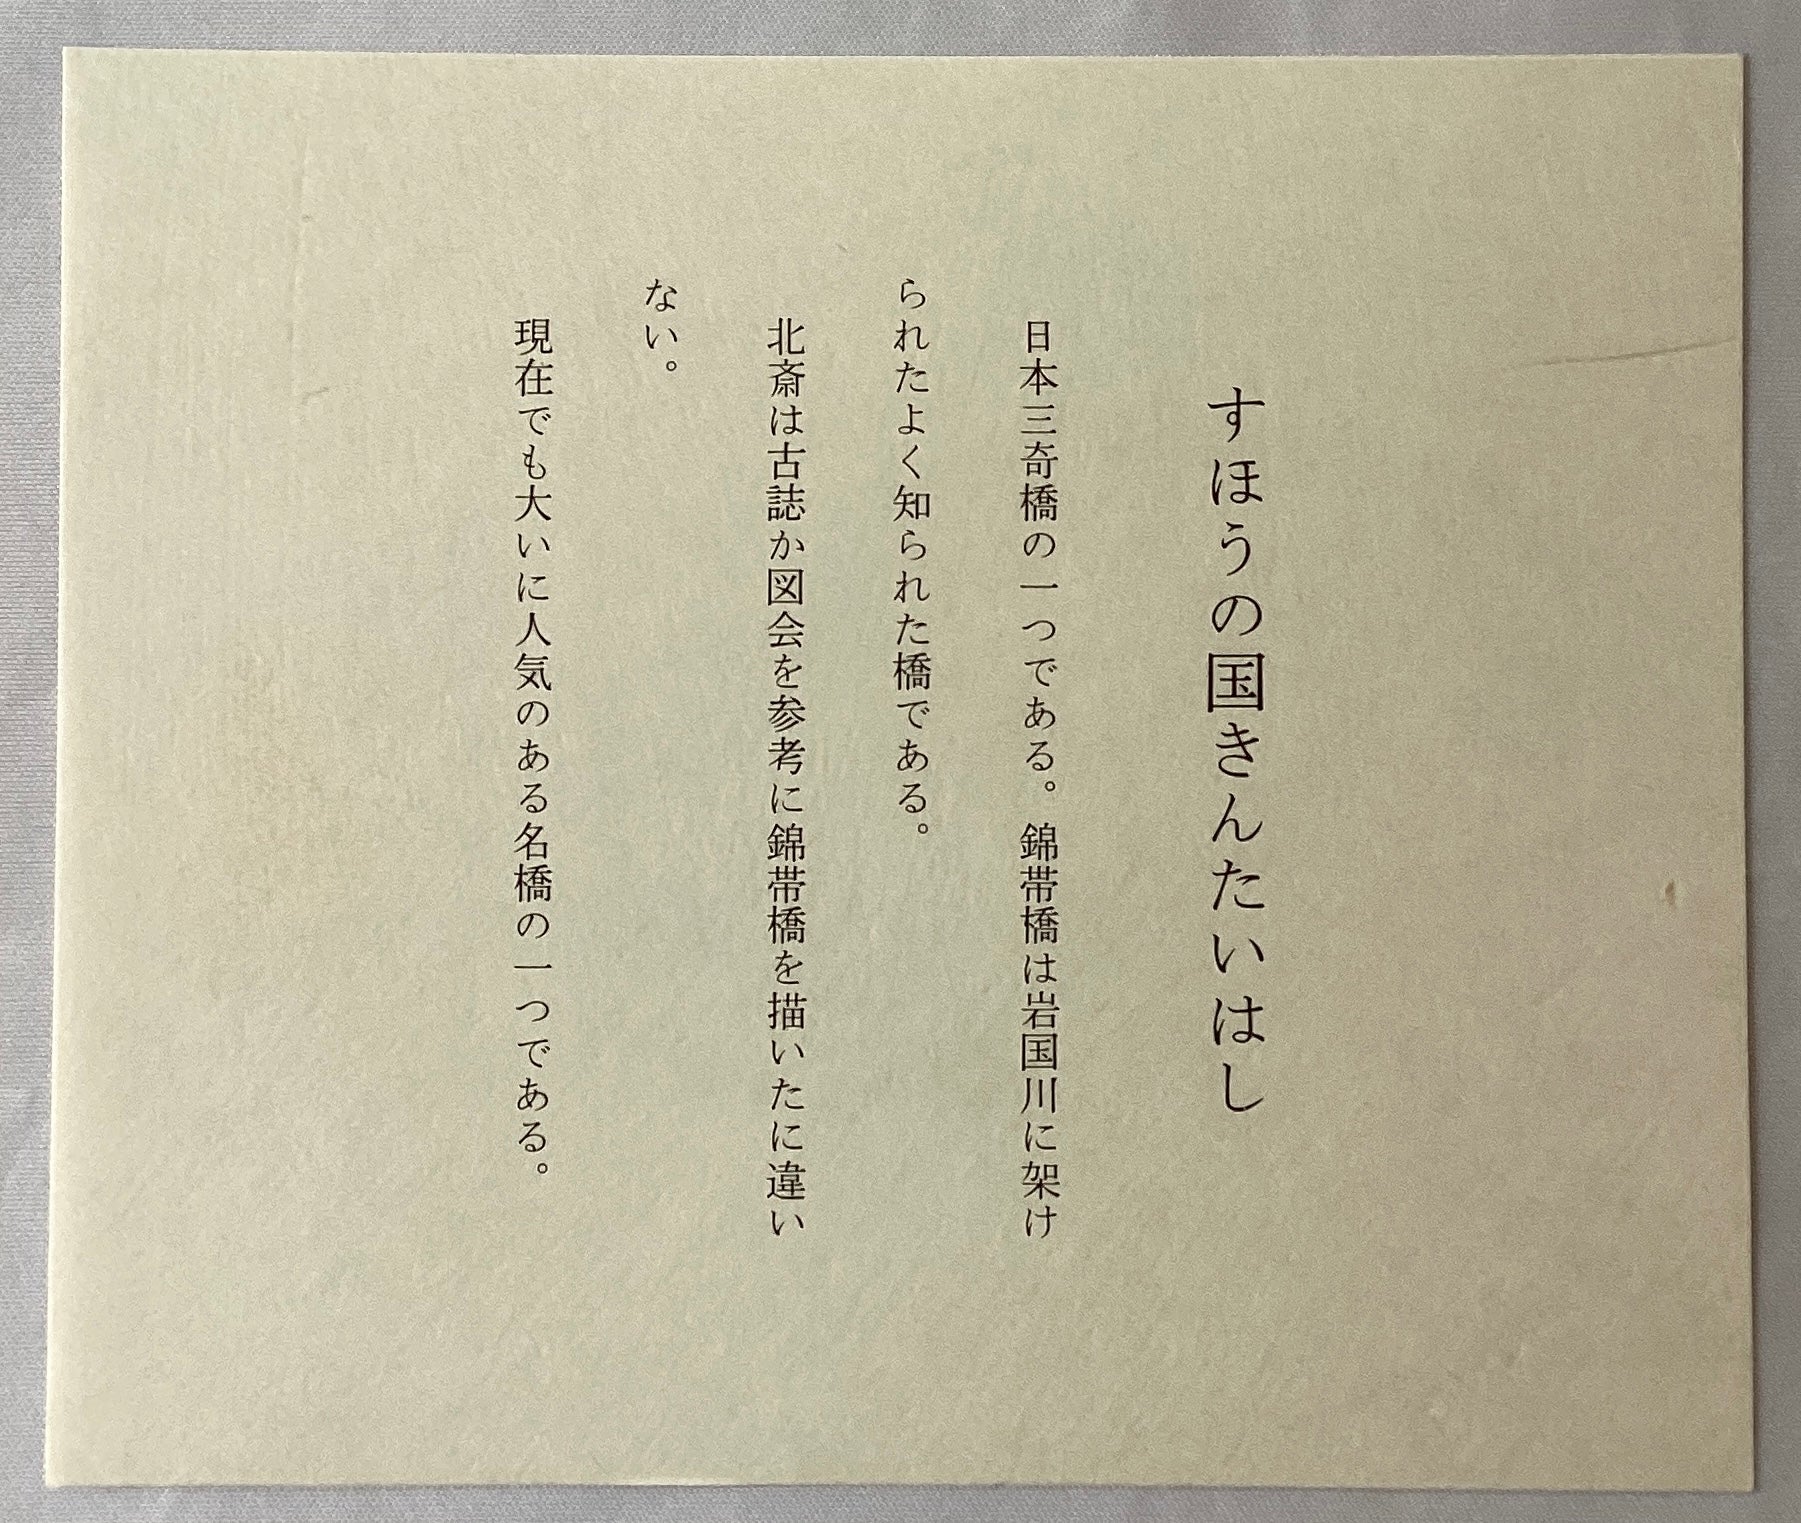 すほうの国きんたいはし
日本三奇橋の一つである。錦帯橋は岩国川に架け
られたよく知られた橋である。
北斎は古誌か図会を参考に錦帯橋を描いたに違い
ない。
現在でも大いに人気のある名橋の一つである。